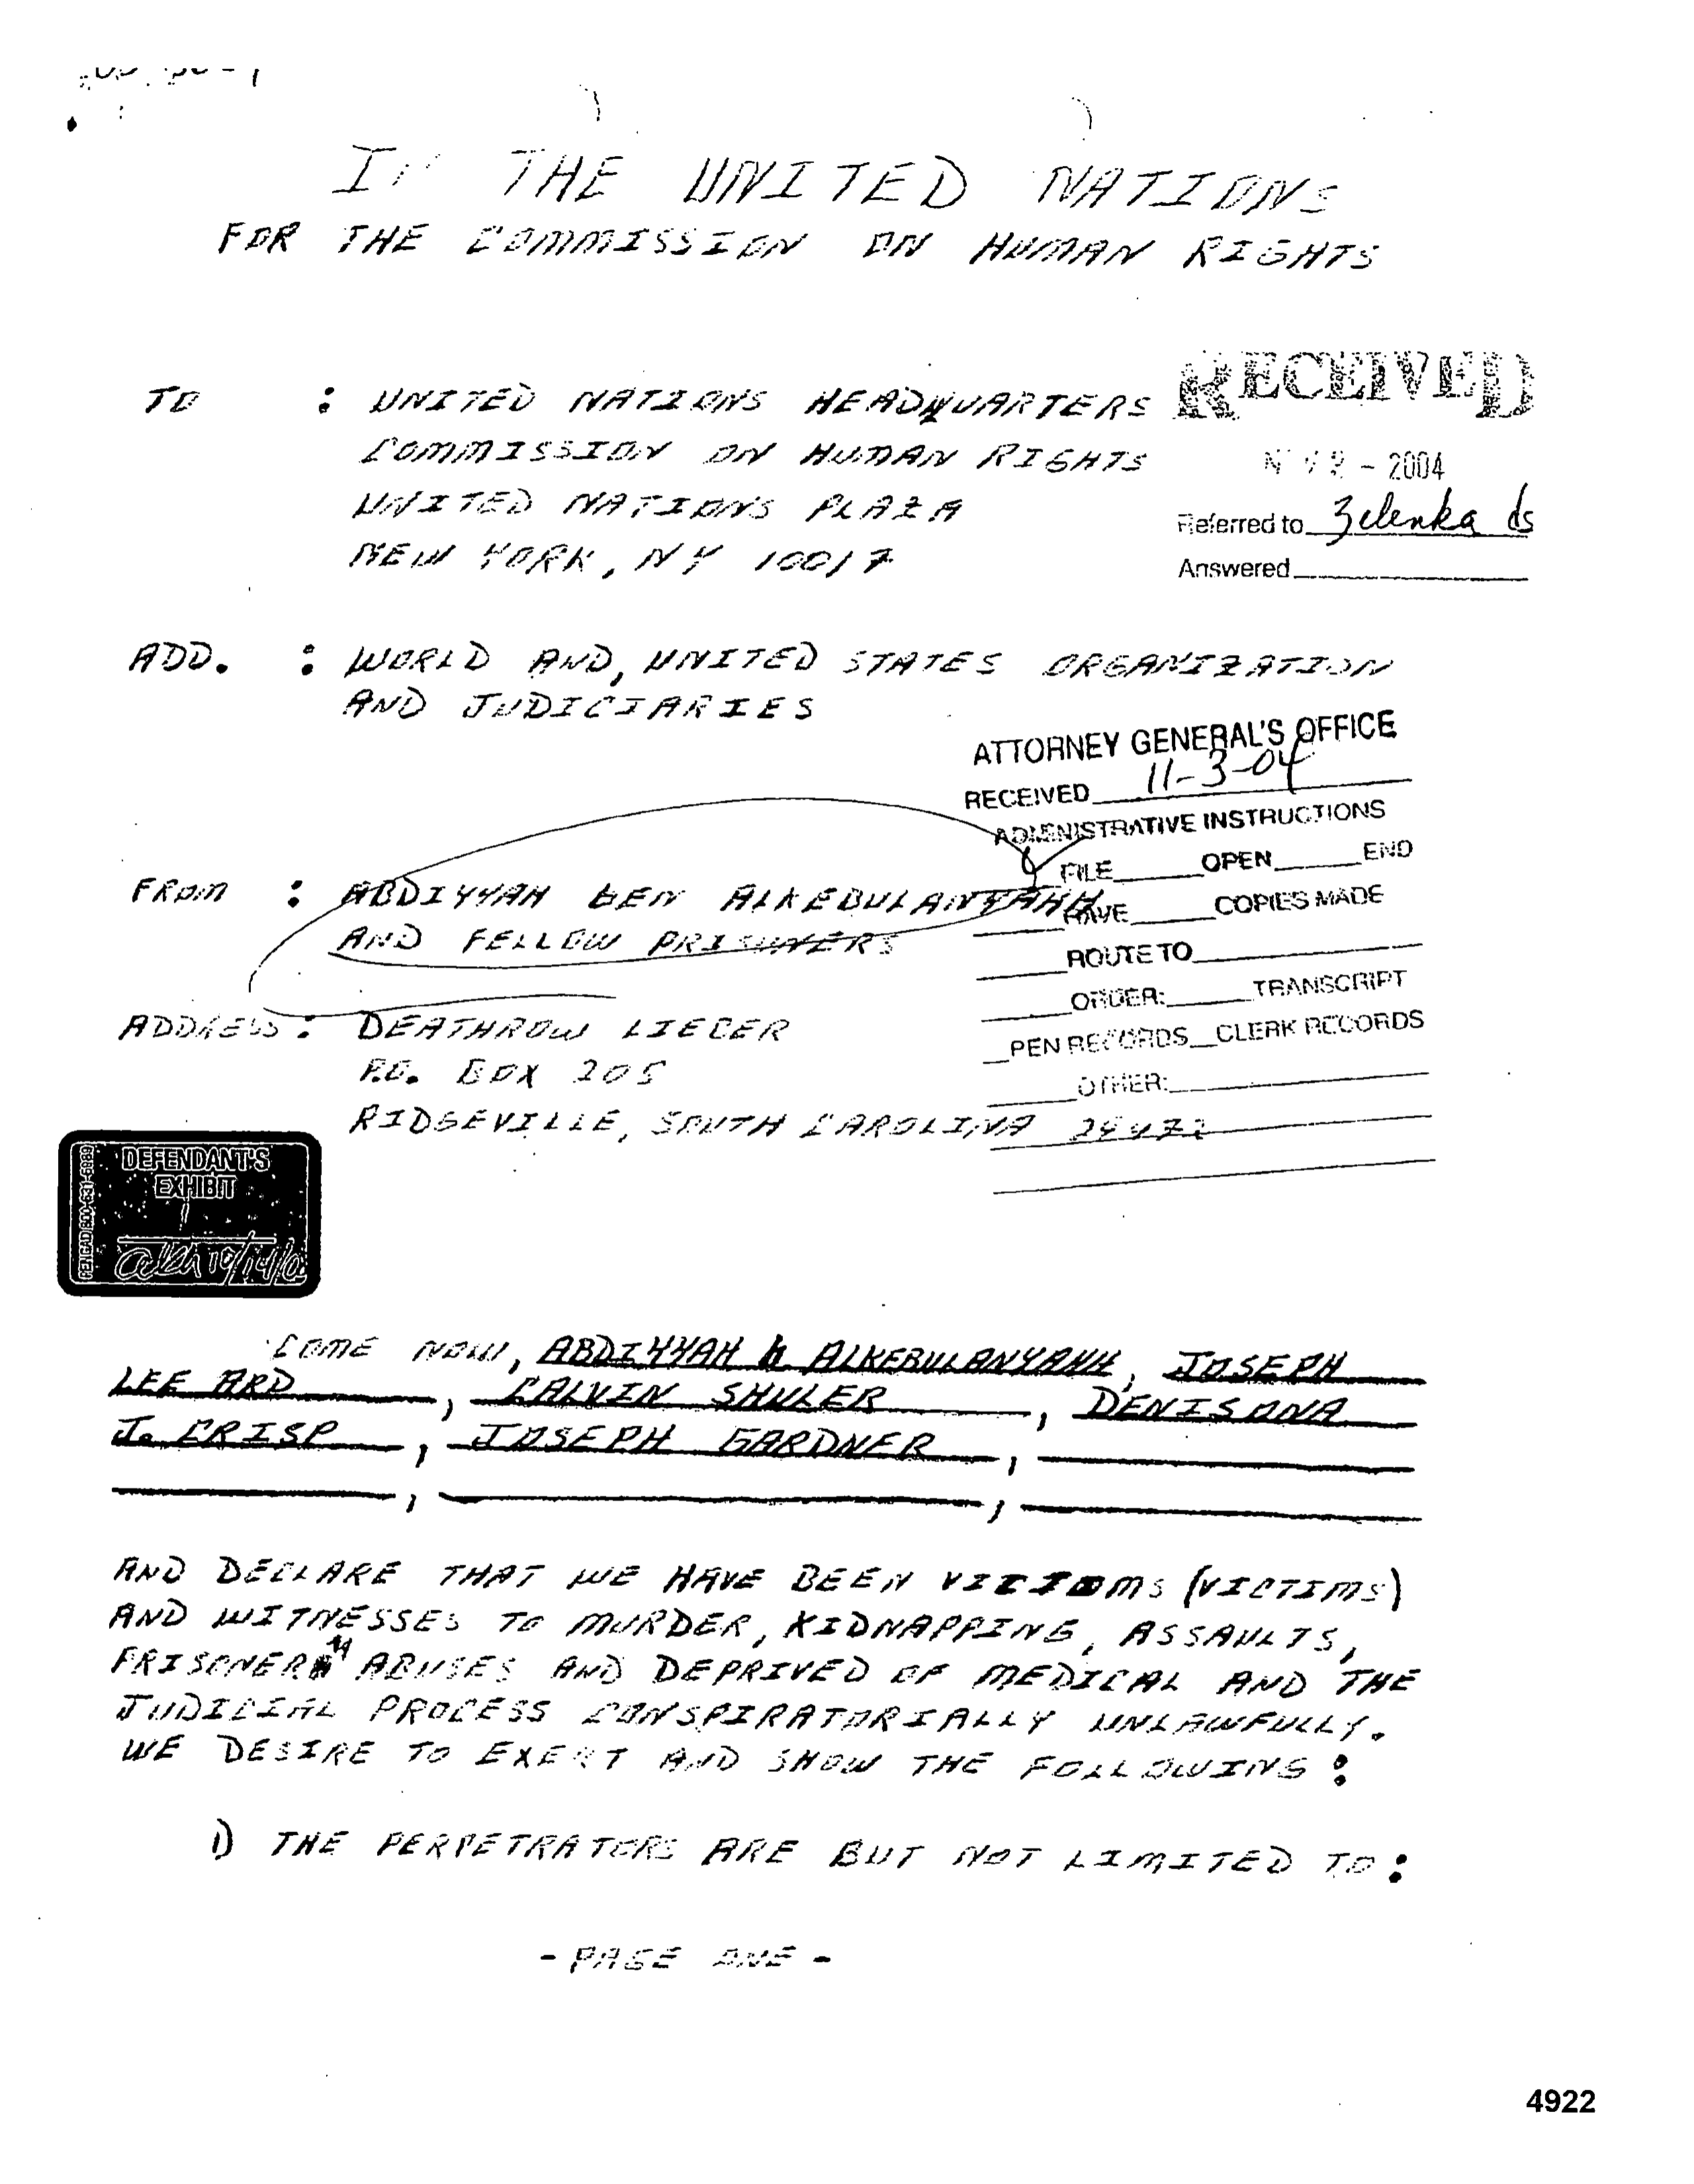 THE UNITED NATIONS
FOR THE COMMISSION ON HUMAN RIGHTS
TO : UNITED NATIONS HEADQUARTERS
COMMISSION ON HUMAN RIGHTS
UNITED NATIONS PLAZA
NEW YORK, NY 10017
RECEIVED
- 2004
Referred to Zelenka ds
Answered
ADD. : WORLD AND, UNITED STATES ORGANIZATION
AND JUDICIARIES
ATTORNEY GENERAL'S OFFICE
RECEIVED 11-3-04
ADMINISTRATIVE INSTRUCTIONS
FILE OPEN END
HAVE COPIES MADE
ROUTE TO
ORDER: TRANSCRIPT
PEN RECORDS CLERK RECORDS
OTHER:
FROM : ABDIYYAH BEN ALKEBULANYAHH
AND FELLOW PRISONERS
ADDRESS : DEATHROW LIEBER
P.O. BOX 205
RIDGEVILLE, SOUTH CAROLINA 29472
DEFENDANT'S
EXHIBIT
1
PENGAD 800-631-6989
COME NOW, ABDIYYAH b ALKEBULANYAHH, JOSEPH
LEE ARD, CALVIN SHULER, DENISONA
J. CRISP, JOSEPH GARDNER,
AND DECLARE THAT WE HAVE BEEN (VICTIMS)
AND WITNESSES TO MURDER, KIDNAPPING, ASSAULTS,
PRISONER ABUSES AND DEPRIVED OF MEDICAL AND THE
JUDICIAL PROCESS CONSPIRATORIALLY UNLAWFULLY.
WE DESIRE TO EXERT AND SHOW THE FOLLOWING :
1) THE PERPETRATORS ARE BUT NOT LIMITED TO :
- PAGE ONE -
4922